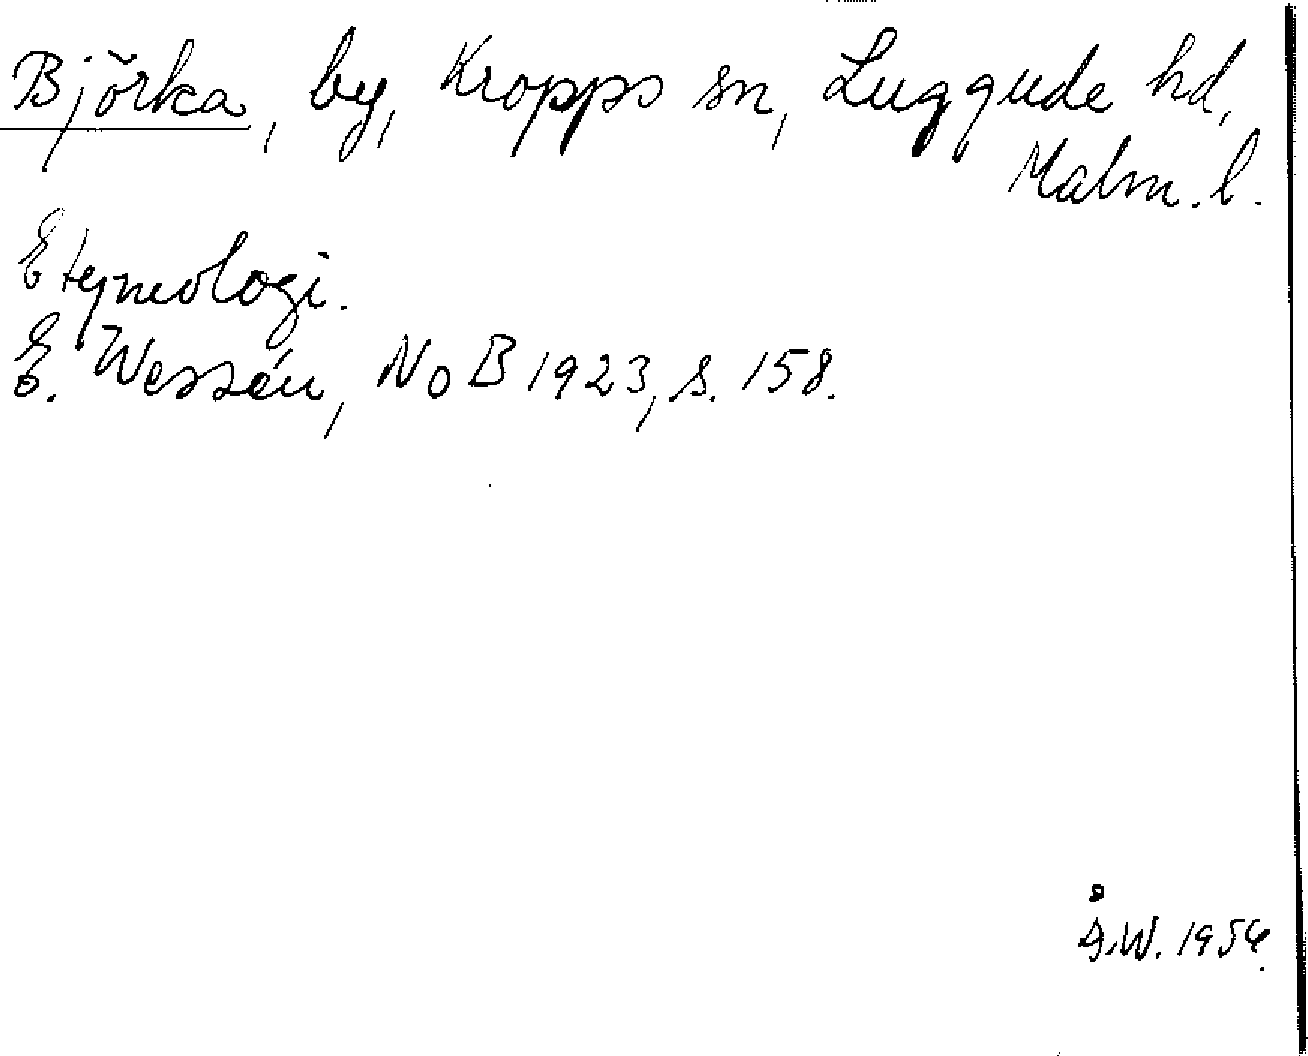 Björka, by, Kropps sn, Luggude hd,
Malm. l.
Etymologi.
E. Wessén, NoB 1923, s. 158.
Å.W. 1954.